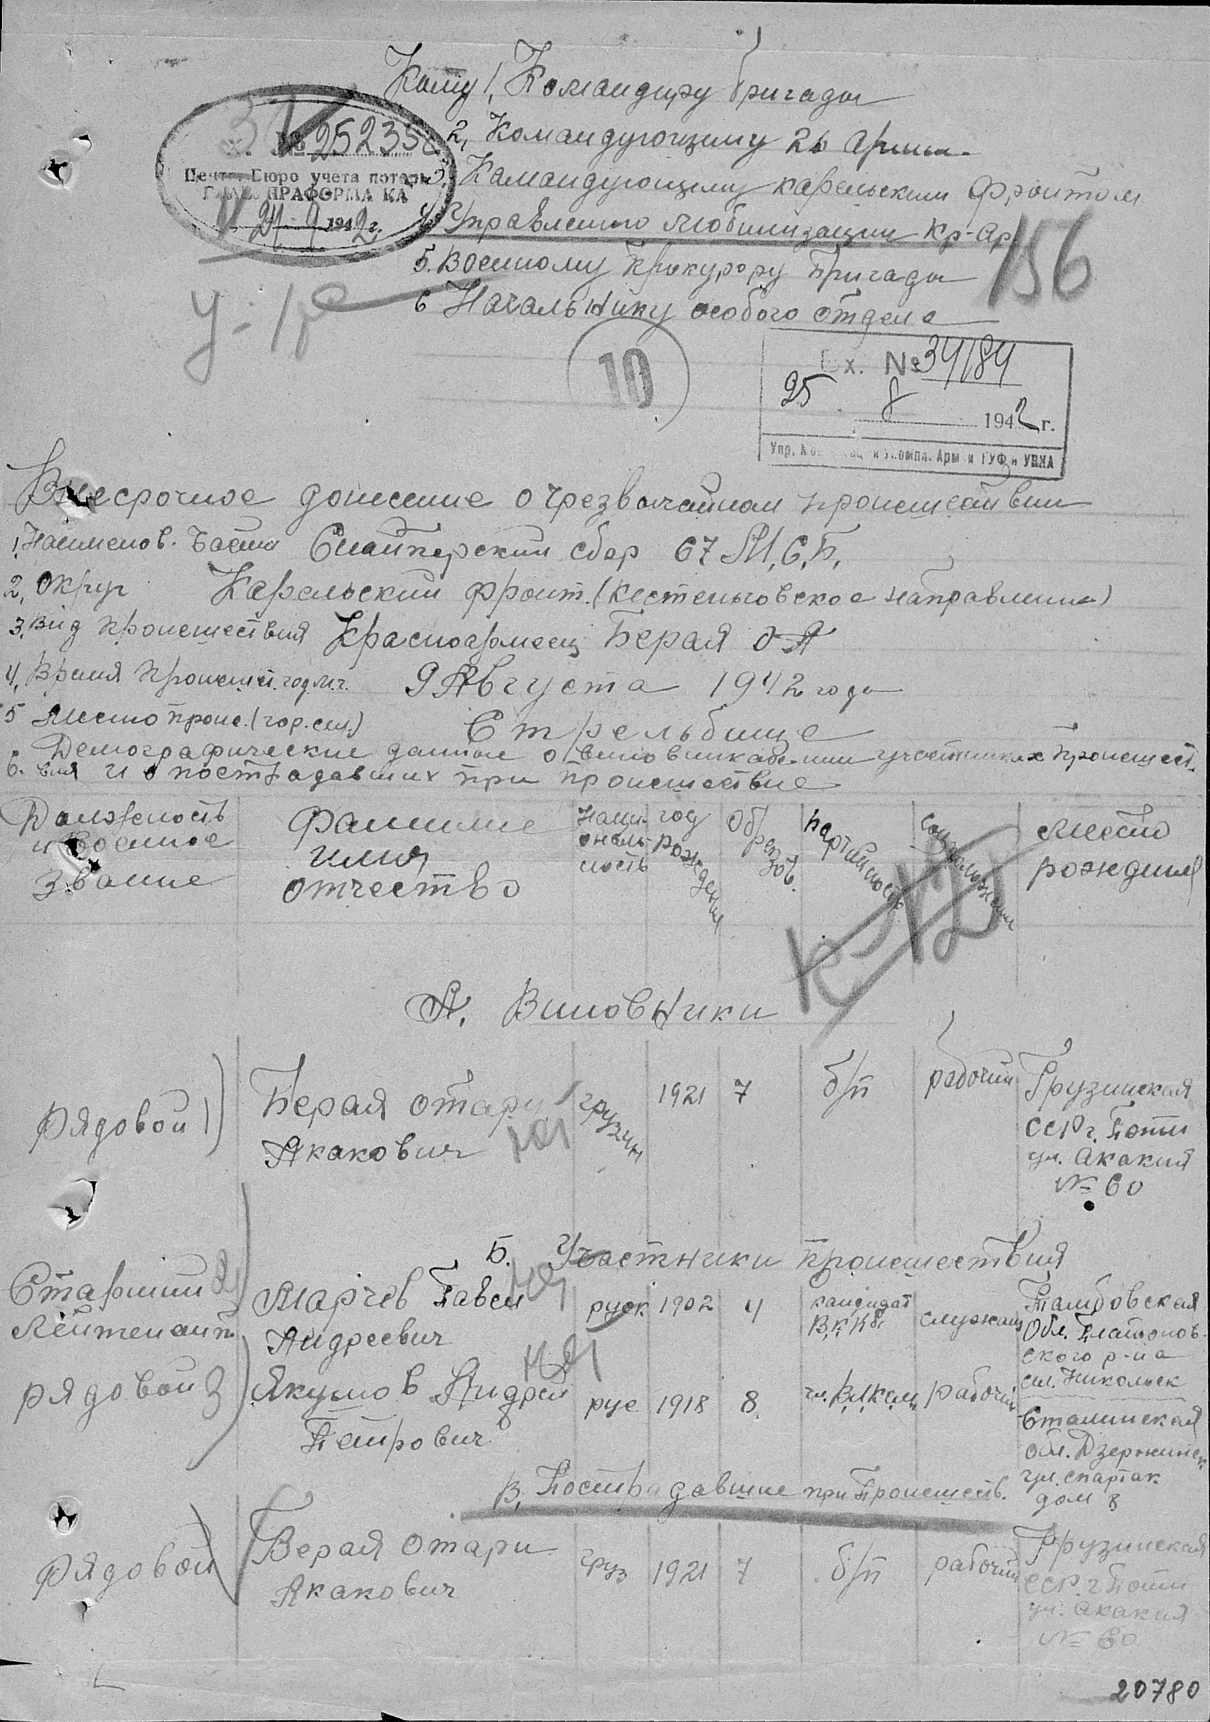 Кому 1, Командиру бригады
2, Командующему 26 армии
3, Командующему карельским фронтом
4, Управлению мобилизации Кр-Ар
5. Военному Прокурору Бригады
6 Начальнику особого отдела
№ 25235
Центр. Бюро учета потерь
ПРАФОРМА КА
21 9 1942 г.
156
10
Вх. № 34184
25 8 1942 г.
Внесрочное донесение о чрезвычайном происшествии
1, Наименов. Части Снайперский сбор 67 М,С,Б,
2, Округ Карельский фронт. (Кестеньговское направление)
3, Вид Происшествия Красноармеец Берая О А
4, Время Происшест. год м.ч. 9 Августа 1942 года
5 Место проис. (гор. сел.) Стрельбище
6. Демографические данные о виновниках
участниках происшест-
вия и о пострадавших при происшествие
Должность
и военное
звание
Фамилие
имя
отчество
Наци-
ональ-
ность
год
рождения
Образов.
партийность
Место
рождения
А. Виновники
Рядовой 1)
Берая отари
Акакович
грузин
1921
7
б/п
рабочий
Грузинская
ССР г. Поти
ул. Акакия
№ 60
Б. Участники происшествия
Старший 2)
Лейтенант
Марчев Павел
Андреевич
руск
1902
4
кандидат
В,К,Кб,
служащ
Тамбовская
Обл. Платонов-
ского р-на
сел. Никольск
рядовой 3)
Якумов Андрей
Петрович
рус
1918
8
рабочий
Сталинская
обл. Дзержинск
ул. спартак
дом 8
В, Пострадавшие при Происшеств.
Рядовой
Берая Отари
Акакович
груз
1921
7
б/п
рабочий
Грузинская
ССР. г Поти
ул. Акакия
№ 60
20780